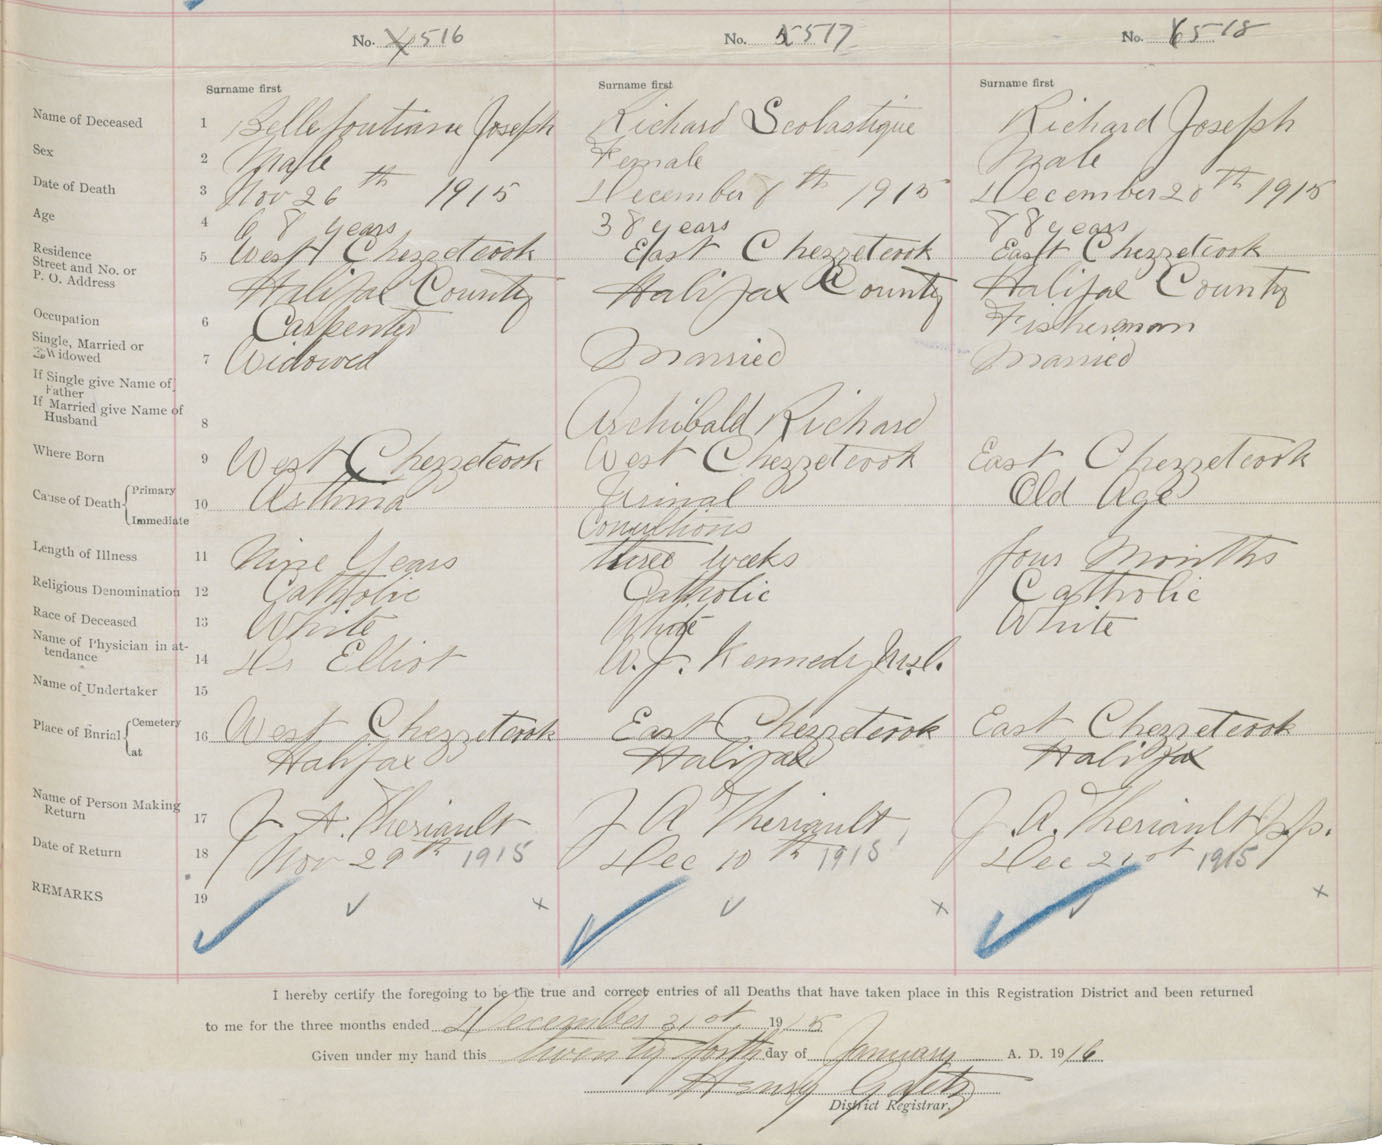 No. 516 No. 517 No. 518
Surname first Surname first Surname first
Name of Deceased 1 Bellefontiane Joseph Richard Scolastique Richard Joseph
Sex 2 Male Female Male
Date of Death 3 Nov 26th 1915 December 8th 1915 December 20th 1915
Age 4 68 years 38 years 88 years
Residence 5 West Chezzetcook East Chezzetcook East Chezzetcook
Street and No. or
P. O. Address Halifax County Halifax County Halifax County
Occupation 6 Carpenter Fisherman
Single, Married or
Widowed 7 Widowed Married Married
If Single give Name of
Father
If Married give Name of
Husband 8 Archibald Richard
Where Born 9 West Chezzetcook West Chezzetcook East Chezzetcook
Cause of Death { Primary 10 Asthma Urinal Old Age
Immediate Convultions
Length of Illness 11 Nine Years three weeks four Months
Religious Denomination 12 Catholic Catholic Catholic
Race of Deceased 13 White White White
Name of Physician in at-
tendance 14 Dr Elliot W. J. Kennedy M.d.
Name of Undertaker 15
Place of Burial { Cemetery 16 West Chezzetcook East Chezzetcook East Chezzetcook
at Halifax Halifax Halifax
Name of Person Making
Return 17 J. A. Theriault J A Theriault J. A. Theriault p.p.
Date of Return 18 Nov 29th 1915 Dec 10th 1915 Dec 21st 1915
REMARKS 19
I hereby certify the foregoing to be the true and correct entries of all Deaths that have taken place in this Registration District and been returned
to me for the three months ended December 31st 1915
Given under my hand this twenty forth day of January A. D. 1916
Henry Gaetz
District Registrar.